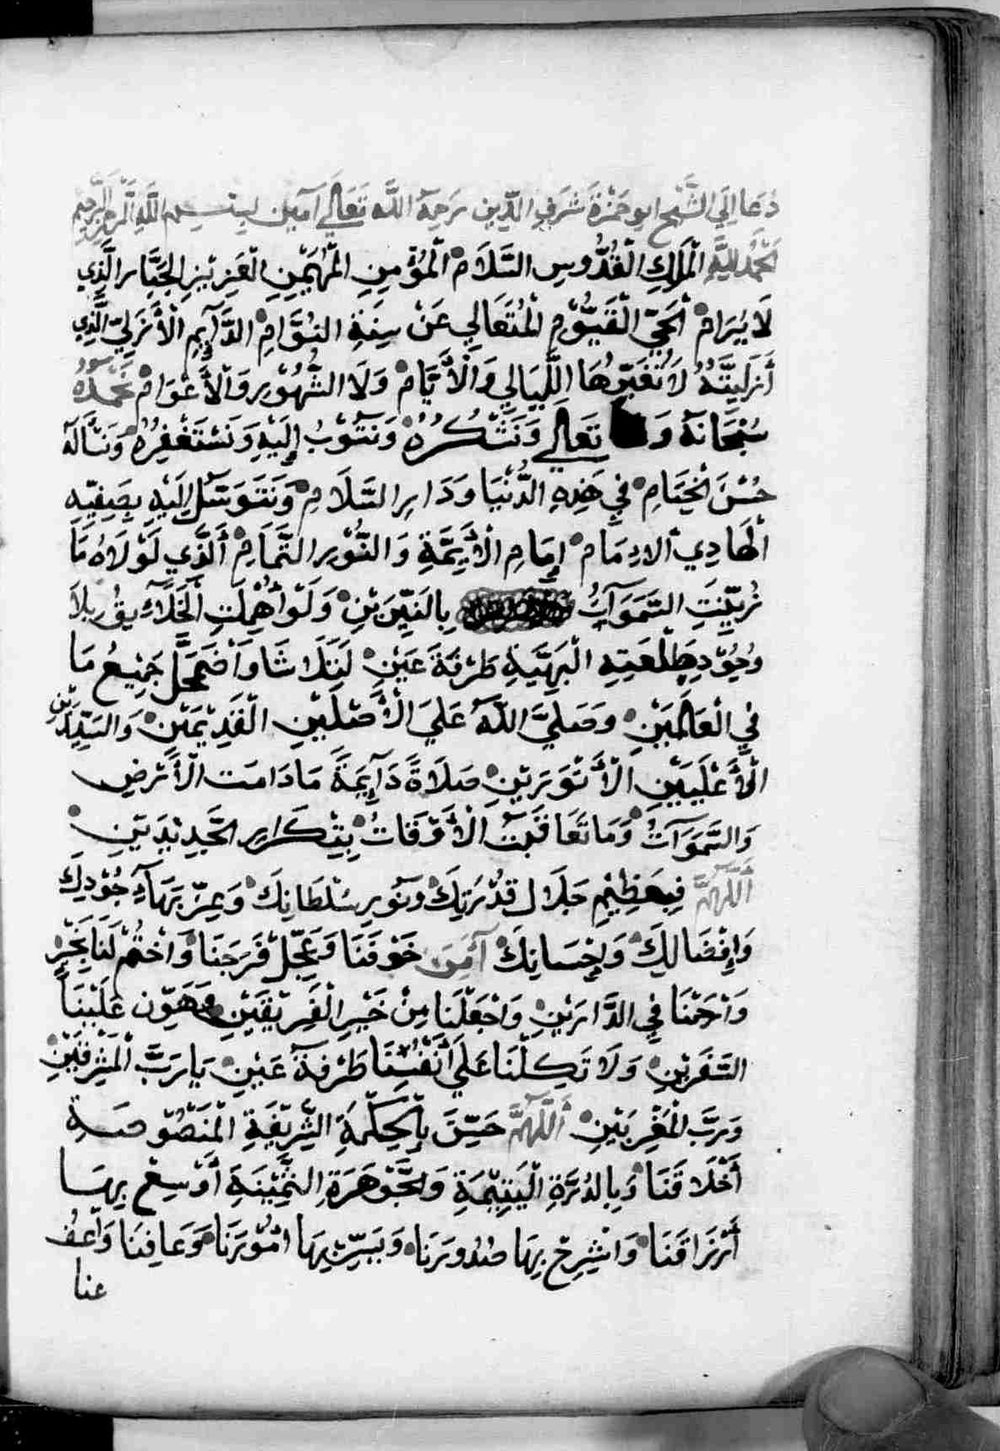 دُعَا اِلَي الشَّيْخ ابو حَمْزَة شَرَفِ الدِّينِ رَحِمَهُ اللَّه تَعَالَي آمَين بسم اللَّه الرَّحْمن الرَّحيْم
الْحَمْدُ للهِ الْمَلِكِ الْقُدُّوسِ السَّلَامْ الْمُؤْمِنِ الْمُهَيْمِنِ الْعَزِيْزِ الجَبَّارِ الَّذِي
لَا يُرَامْ الْحَيِّ الْقَيُّوْمِ الْمُتَعَالِي عَنْ سِنَةِ النُوَّامِ الدَّآيِمِ الْأَزَلِيّ الَّذِي
أَزَلِيَّتَهُ لَا تُغَيِّرُهَا اللَّيَالِي وَالْأَيَّامْ وَلَا الشُّهُوْرِ وَالْأَعْوَامْ نَحْمَدُهُ
سُبْحَانَهُ وَ تَعَالَي وَنَشْكُرُهْ وَنَتُوْبُ إِلَيْهِ وَنَسْتَغْفِرُهْ وَنَسْأَلَهُ
حُسْنَ الْخِتَامِ فِي هَذِهِ الدُّنْيَا وَدَارِ السَّلَامِ وَنَتَوَسَّلُ إِلَيْهِ بِصَفِيِّهِ
الْهَادِي الإمَامْ إِمَامِ الْأَيِمَّةِ وَالنُّوْرِ التَّمَامْ الَّذِي لَوْلَاهُ مَا
زُيِّنَتِ السَّمَوَاتُ بِالنَيِّرَيْنِ وَلَوْ أُهْمِلَتِ الْخَلَآيِقُ بِلَا
وُجُوْدِ طَلْعَتِهِ الْبَهِيَّةِ طَرْفَةَ عَيْنِ لَتَلَاشَا وَاضْمَحَلَّ جَمِيْعُ مَا
فِي الْعَالَمَيْنِ وَصَلَّيَ اللَّهُ عَلَيَ الْأَصْلَيْنِ الْقَدِيْمَيْنِ وَالسَّيِّدَيْنِ
الْأَعْلَيَيْنِ الْأَنْوَرَيْنِ صَلَاةً دَآيِمَةً مَا دَامَت الْأَرْضِ
وَالسَّمَوَاتُ وَمَا تَعَاقَبَتْ الْأَوْقَاتُ بِتِكْرَارِ الجَدِيْدَيْنِ
أَللَّهُمَّ فَبِعَظِيْمِ جَلَالِ قُدْرَتِكَ وَنُوْرِ سُلْطَانِكَ وَعِزِّ بَهَآءِ جُوْدِكَ
وَإِفْضَالِكَ وَإِحْسَانِكَ آمِنْ خَوْفَنَا وَعَجِّلْ فَرَجَنَا وَاخْتُمْ لَنَا بِخَيْرِ
وَارْحَمْنَا فِي الدَّارَيْنِ وَاجْعَلْنَا مِنْ خَيْرِ الْفَرِيْقَيْنِ وَهَوِّن عَلَيْنَا
السَفَرَيْنِ وَلَا تَكِلْنَا عَلَي أَنْفُسِنَا طَرْفَةَ عَيْنِ يَا رَبَّ الْمَشْرِقَيْنِ
وَرَبَّ الْمَغْرِبَيْنِ أَللَّهُمَّ حَسِّنَ بِالْحِكْمَةِ الشَّرِيْفَةِ الْمَنْصُوْصَةِ
أَخْلَاقَنَا وَبِالدُرَّةِ الْيَتِيْمَةِ وَالْجَوْهَرَةِ الثَّمِيْنَةِ أَوْسِعْ بِهَا
أَرْزَاقَنَا وَاشْرِحْ بِهَا صُدُورَنَا وَيَسِّرْ بِهَا اُمُوْرَنَا وَعَافِنَا وَاعْفُ
عنا